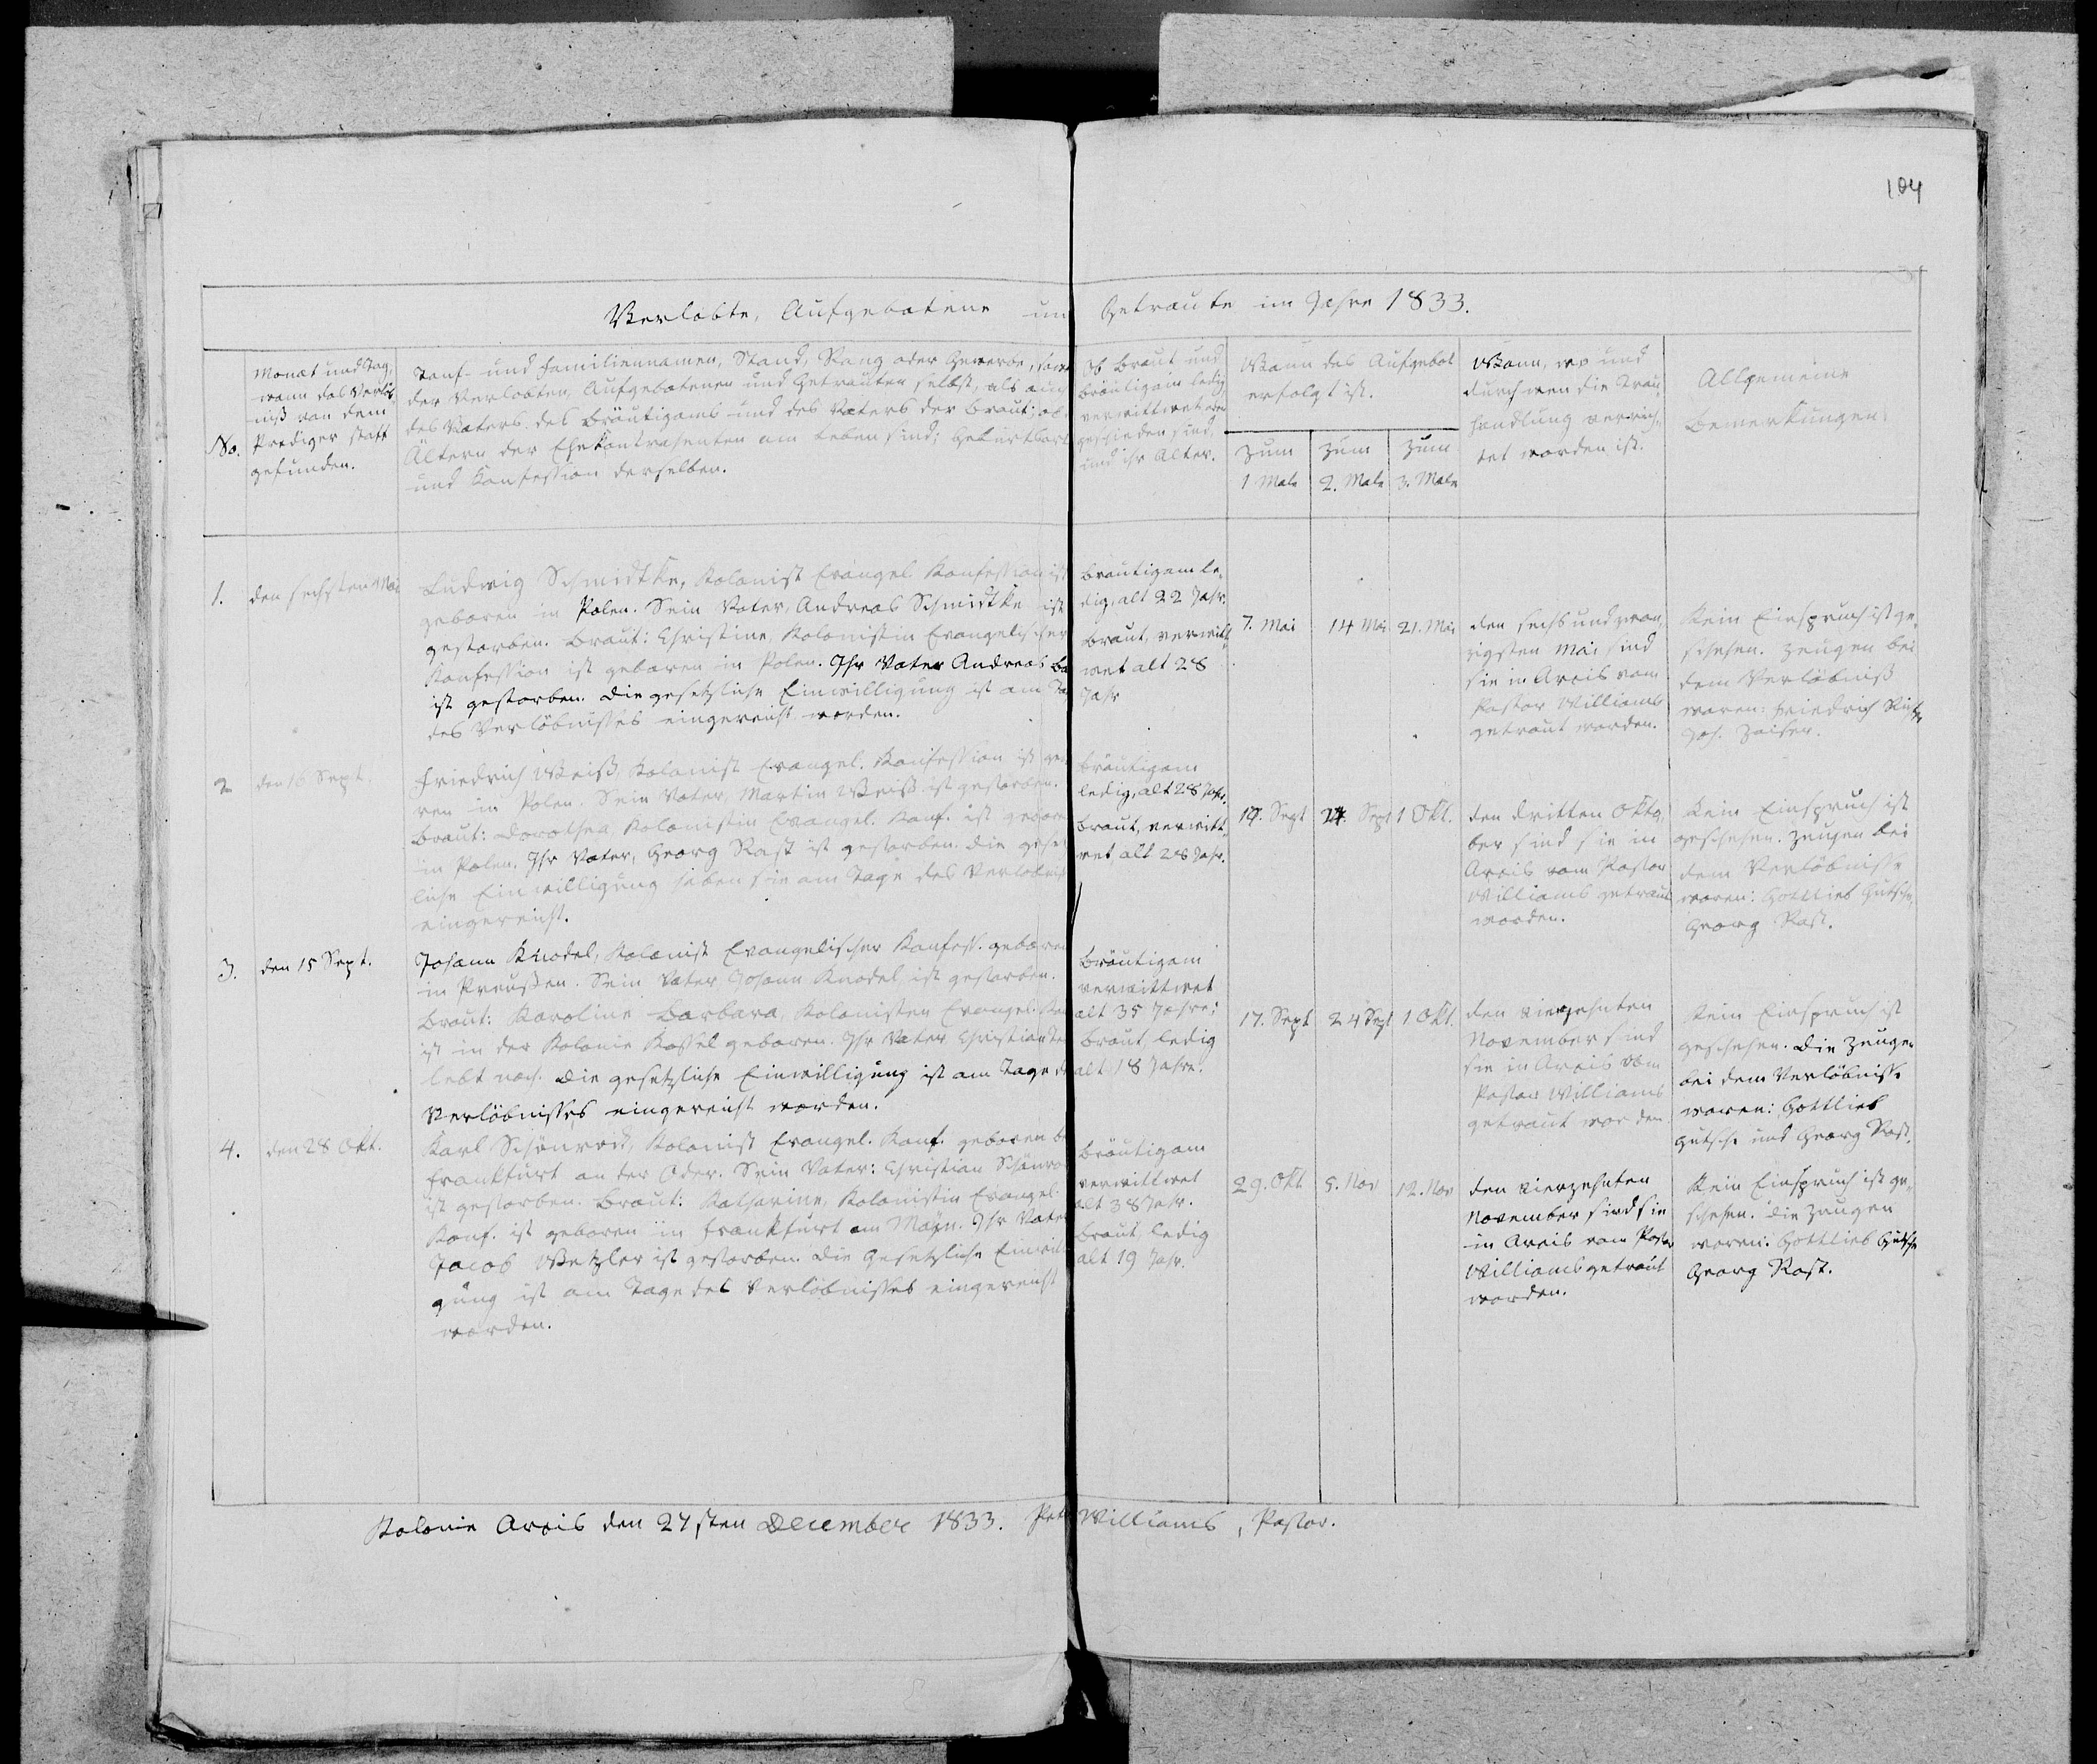 104
Verlobte, Aufgebotene un Getraute im Jahre 1833.
No.
Monat und Tag,
wann das Verlöb-
niß von dem
Prediger statt
gefunden.
Tauf- und Familiennamen, Stand, Rang oder Gewerbe, sowohl
der Verlobten, Aufgebotenen und Getrauten selbst, als auch
des Vaters des Bräutigams und des Vaters der Braut; ob
Ältern der Ehekontrahenten am Leben sind; Geburtsort
und Konfession derselben.
Ob Braut und
Bräutigam ledig,
verwittwet oder
geschieden sind,
und ihr Alter.
Wann das Aufgebot
erfolgt ist.
zum
1 Male
zum
2. Male
zum
3. Male
Wann, wo und
durch wen die Trau-
handlung verrich-
tet worden ist.
Allgemeine
Bemerkungen.
1.
den sechsten Mai
Ludwig Schmidtke, Kolonist Evangel. Konfession ist
geboren in Polen. Sein Vater, Andreas Schmidtke ist
gestorben. Braut: Christine, Kolonistin Evangelischer
Konfession ist geboren in Polen. Ihr Vater Andreas
ist gestorben. Die gesetzliche Einwilligung ist am Ta
des Verlöbnisses eingereicht worden.
Bräutigam le-
dig, alt 22 Jahr.
Braut, verwitt-
wet alt 28
Jahr
7. Mai
14 Mai
21. Mai
den sechsundzwan-
zigsten Mai sind
sie in Arcis vom
Pastor Williams
getraut worden.
Kein Einspruch ist ge-
schehen. Zeugen bei
dem Verlöbniß
waren: Friedrich
Joh. Zaiser.
2
den 16 Sept.
Friedrich Weiß, Kolonist Evangel. Konfession ist gebo
ren in Polen. Sein Vater, Martin Weiß ist gestorben.
Braut: Dorothea, Kolonistin Evangel. Konf. ist gebore
in Polen. Ihr Vater, Georg Rast ist gestorben. Die geset
liche Einwilligung haben sie am Tage des Verlöbniss
eingereicht.
Bräutigam
ledig, alt 28 Jahr.
Braut, verwitt-
wet alt 28 Jahr.
17. Sept
24. Sept
1 Okt.
den dritten Okto-
ber sind sie in
Arcis vom Pastor
Williams getraut
worden.
Kein Einspruch ist
geschehen. Zeugen bei
dem Verlöbnisse
waren: Gottlieb Gutsche,
Georg Rast.
3.
den 15 Sept.
Johann Knodel, Kolonist Evangelischer Konfess. geboren
in Preußen. Sein Vater Johann Knodel ist gestorben.
Braut: Karoline Barbara, Kolonisten Evangel. Kon
ist in der Kolonie Kassel geboren. Ihr Vater Christian
lebt noch. Die gesetzliche Einwilligung ist am Tage de
Verlöbnisses eingereicht worden.
Bräutigam
verwittwet
alt 35 Jahre;
Braut, ledig
alt 18 Jahre.
17. Sept
24 Sept
1. Okt.
den vierzehnten
November sind
sie in Arcis vom
Pastor Williams
getraut worden
Kein Einspruch ist
geschehen. Die Zeugen
bei dem Verlöbnisse
waren: Gottlieb
Gutsche und Georg Rast.
4.
den 28 Okt.
Karl Schönrock, Kolonist Evangel. Konf. geboren be
Frankfurt an der Oder. Sein Vater: Christian Schönro
ist gestorben. Braut: Katharine, Kolonistin Evangel.
Konf. ist geboren in Frankfurt am Mayn. Ihr Vater
Jacob Wetzler ist gestorben. Die Gesetzliche Einwilli
gung ist am Tage des Verlöbnisses eingereicht
worden.
Bräutigam
verwittwet
alt 38 Jahr.
Braut, ledig
alt 19 Jahr.
29. Okt
5. Nov
12. Nov
den vierzehnten
November sind sie
in Arcis vom Pastor
Williams getraut
worden.
Kein Einspruch ist ge-
schehen. Die Zeugen
waren: Gottlieb Gutsche
Georg Rast.
Kolonie Arcis den 27sten December 1833. Pet Williams, Pastor.